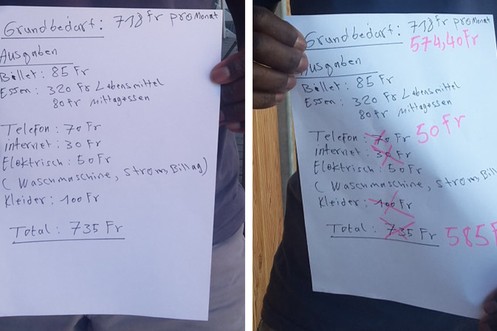 Grundbedarf: 718 Fr pro Monat
Ausgaben
Billet: 85 Fr
Essen: 320 Fr Lebensmittel
80 Fr Mittagessen
Telefon: 70 Fr
internet: 30 Fr
Elektrisch: 50 Fr
(Waschmaschine, Strom, Billag)
Kleider: 100 Fr
Total: 735 Fr
Grundbedarf: 718 Fr pro Monat
574,40 Fr
Ausgaben
Billet: 85 Fr
Essen: 320 Fr Lebensmittel
80 Fr Mittagessen
Telefon: 70 Fr 50 Fr
internet: 30 Fr
Elektrisch: 50 Fr
(Waschmaschine, Strom, Billag
Kleider: 100 Fr
Total: 735 Fr 585 F